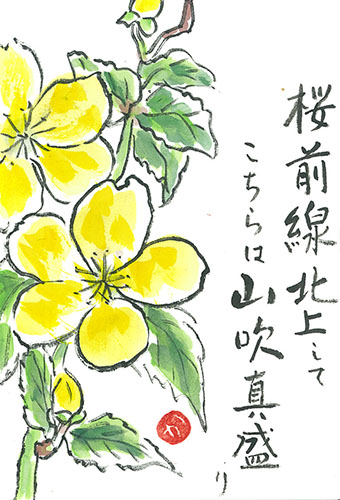 桜前線北上して
こちらは山吹真盛
り